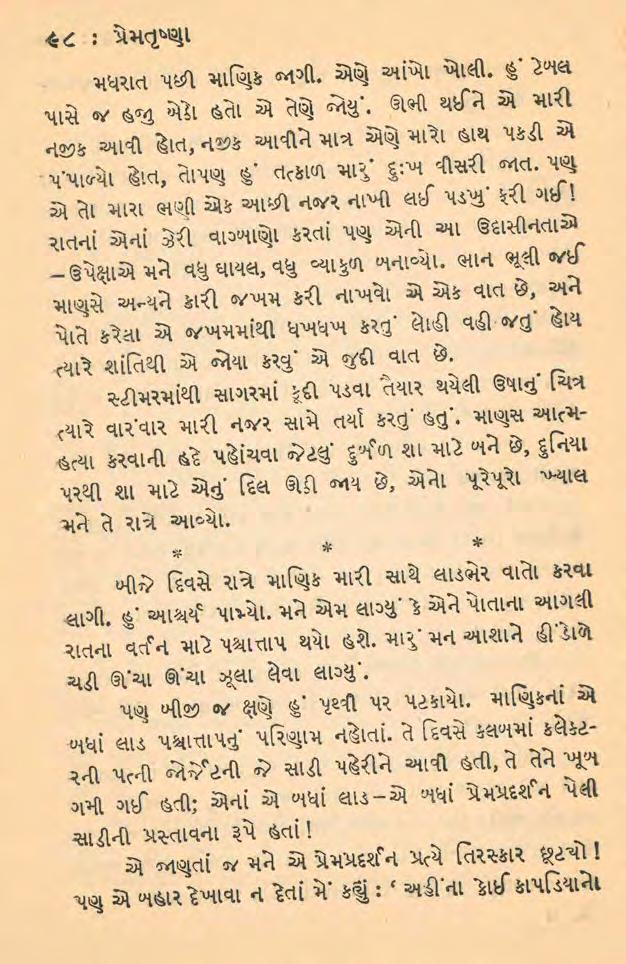 ૯૮ : પ્રેમતૃષ્ણા
મધરાત પછી માણિક જાગી. એણે આંખો ખોલી. હું ટેબલ
પાસે જ હજુ બેઠો હતો એ તેણે જોયું. ઊભી થઈને એ મારી
નજીક આવી હોત, નજીક આવીને માત્ર એણે મારો હાથ પકડી એ
પંપાળ્યો હોત, તોપણ હું તત્કાળ મારું દુઃખ વીસરી જાત. પણ
એ તો મારા ભણી એક આછી નજર નાખી લઈ પડખું ફરી ગઈ!
રાતનાં એનાં ઝેરી વાગ્બાણો કરતાં પણ એની આ ઉદાસીનતાએ
–ઉપેક્ષાએ મને વધુ ઘાયલ, વધુ વ્યાકુળ બનાવ્યો. ભાન ભૂલી જઈ
માણુસે અન્યને કારી જખમ કરી નાખવો એ એક વાત છે, અને
પોતે કરેલા એ જખમમાંથી ધખધખ કરતું લોહી વહી જતું હોય
ત્યારે શાંતિથી એ જોયા કરવું એ જુદી વાત છે.
સ્ટીમરમાંથી સાગરમાં કૂદી પડવા તૈયાર થયેલી ઉષાનું ચિત્ર
ત્યારે વારંવાર મારી નજર સામે તર્યા કરતું હતું. માણસ આત્મ-
હત્યા કરવાની હદે પહોંચવા જેટલું દુર્બળ શા માટે બને છે, દુનિયા
પરથી શા માટે એનું દિલ ઊડી જાય છે, એનો પૂરેપૂરો ખ્યાલ
મને તે રાત્રે આવ્યો.
* * *
બીજે દિવસે રાત્રે માણિક મારી સાથે લાડભેર વાતો કરવા
લાગી. હું આશ્ચર્ય પામ્યો. મને એમ લાગ્યું કે એને પોતાના આગલી
રાતના વર્તન માટે પશ્ચાત્તાપ થયો હશે. મારું મન આશાને હીંડોળે
ચડી ઊંચા ઊંચા ઝૂલા લેવા લાગ્યું.
પણ બીજી જ ક્ષણે હું પૃથ્વી પર પટકાયો. માણિકનાં એ
બધાં લાડ પશ્ચાત્તાપનું પરિણામ નહોતાં. તે દિવસે કલબમાં કલેક્ટ-
રની પત્ની જ્યોર્જેટની જે સાડી પહેરીને આવી હતી, તે તેને ખૂબ
ગમી ગઈ હતી; એનાં એ બધાં લાડ–એ બધાં પ્રેમપ્રદર્શન પેલી
સાડીની પ્રસ્તાવના રૂપે હતાં!
એ જાણતાં જ મને એ પ્રેમપ્રદર્શન પ્રત્યે તિરસ્કાર છૂટ્યો!
પણ એ બહાર દેખાવા ન દેતાં મેં કહ્યું : ‘ અહીંના કોઈ કાપડિયાનો